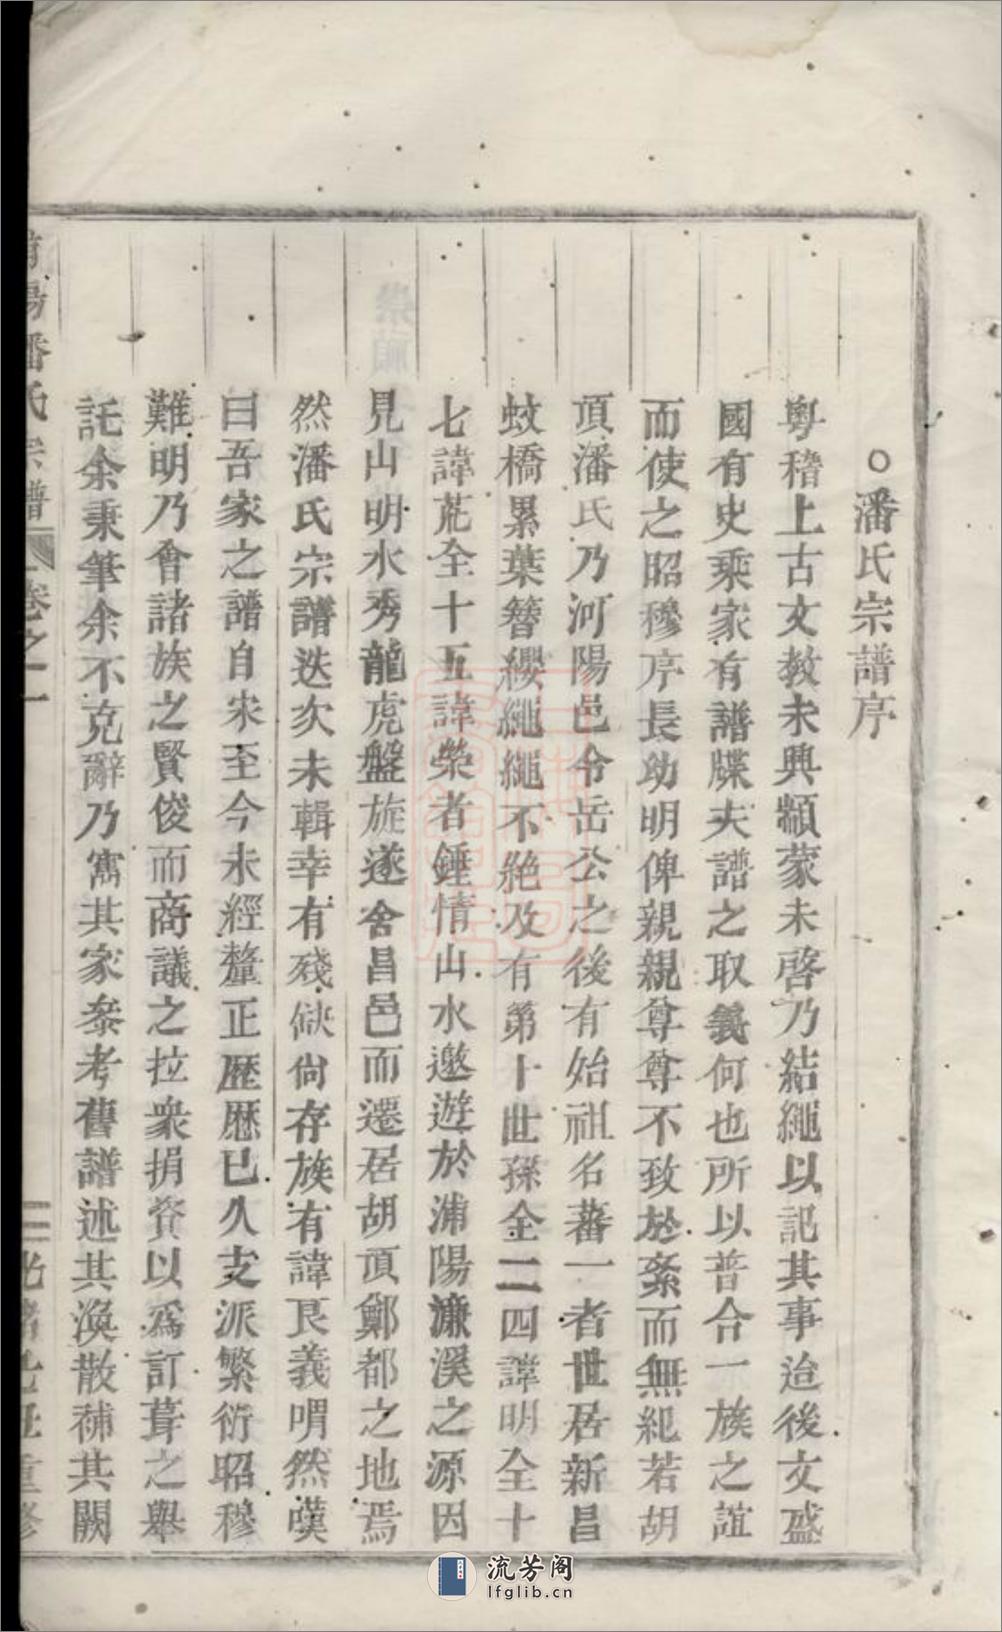 ○潘氏宗譜序
粤稽上古文教未興顓蒙未啓乃結繩以記其事迨後文盛
國有史乘家有譜牒夫譜之取義何也所以普合一族之誼
而使之昭穆序長幼明俾親親尊尊不致於紊而無紀若胡
頂潘氏乃河陽邑令岳公之後有始祖名蕃一者世居新昌
蚊橋累葉簪纓繩繩不絶及有第十世孫全二四諱明全十
七諱茈全十五諱榮者鍾情山水遨遊於浦陽濂溪之源因
見山明水秀龍虎盤旋遂舍昌邑而遷居胡頂鄭都之地焉
然潘氏宗譜迭次未輯幸有殘缺尙存族有諱艮義喟然嘆
曰吾家之譜自宋至今未經釐正歷歷已久支派繁衍昭穆
難明乃會諸族之賢俊而商議之拉衆捐資以爲訂葺之舉
託余秉筆余不克辭乃寓其家叅考舊譜述其渙散補其闕
浦陽潘氏宗譜 卷之一 二 光緒乙 重修
流芳阁
lfglib.cn